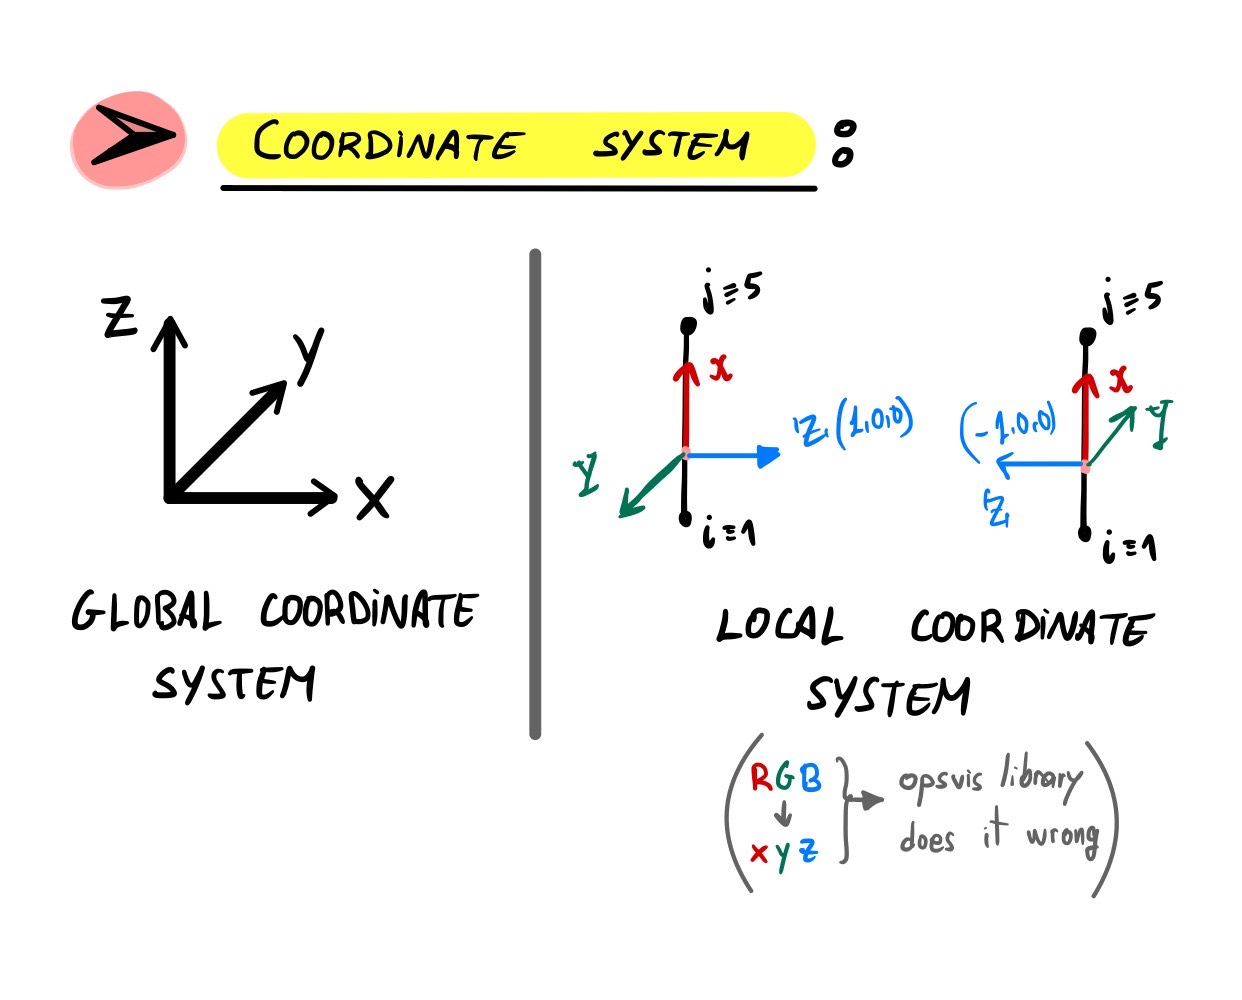 COORDINATE SYSTEM :
Z
Y
X
GLOBAL COORDINATE
SYSTEM
j≡5
x
Z (1,0,0)
Y
i≡1
j≡5
x
(-1,0,0)
Y
Z
i≡1
LOCAL COORDINATE
SYSTEM
(RGB } → opsvis library
↓
xyz does it wrong)